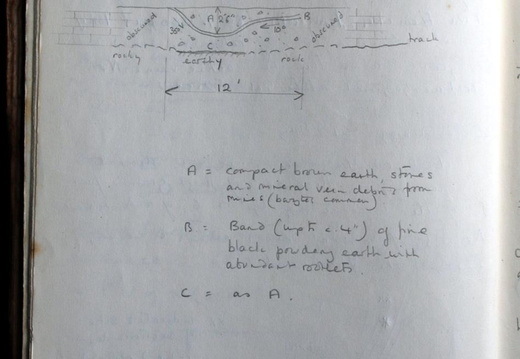 A 2'6"
B
obscured
35°
10°
obscured
C
track
rocky
earthy
rock
12'
A = compact brown earth, stones
and mineral vein debris from
mines (barytes common)
B = Band (up to c. 4") of fine
black powdery earth with
abundant rootlets.
C = as A.